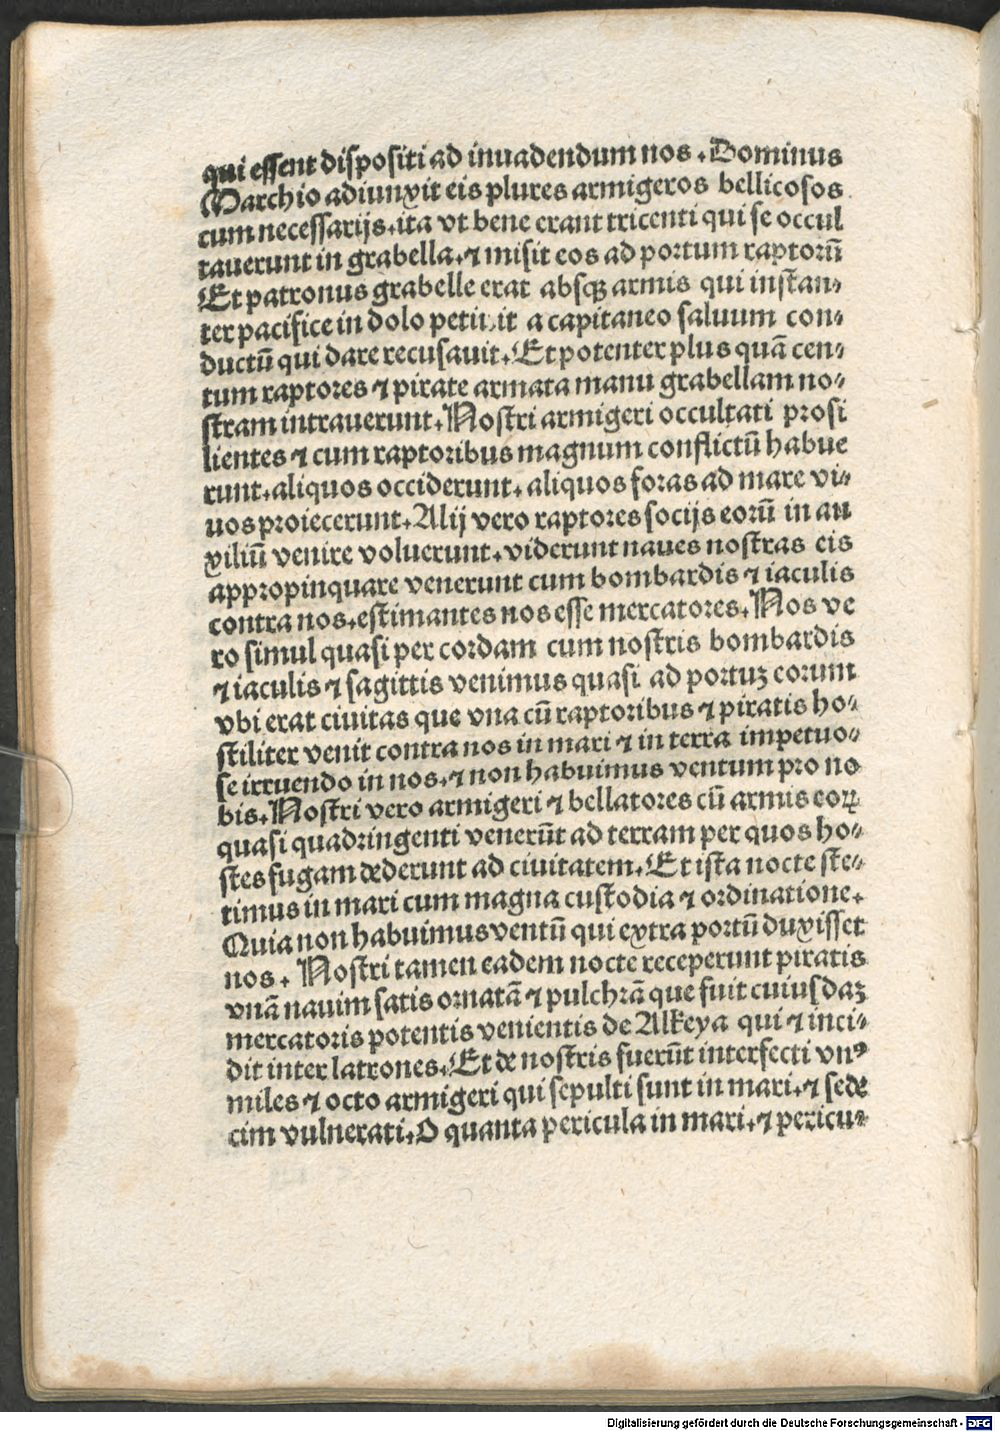 qui essent dispositi ad inuadendum nos. Dominus
Marchio adiunxit eis plures armigeros bellicosos
cum necessarijs. ita vt bene erant tricenti qui se occul
tauerunt in grabella. ⁊ misit eos ad portum raptorū
Et patronus grabelle erat absqꝫ armis qui instan⸗
ter pacifice in dolo petiuit a capitaneo saluum con⸗
ductū qui dare recusauit. Et potenter plus quā cen⸗
tum raptores ⁊ pirate armata manu grabellam no⸗
stram intrauerunt. Nostri armigeri occultati prosi
lientes ⁊ cum raptoribus magnum conflictū habue
runt. aliquos occiderunt. aliquos foras ad mare vi⸗
uos proiecerunt. Alij vero raptores socijs eorū in au
xiliū venire voluerunt. viderunt naues nostras eis
appropinquare venerunt cum bombardis ⁊ iaculis
contra nos. estimantes nos esse mercatores. Nos ve
ro simul quasi per cordam cum nostris bombardis
⁊ iaculis ⁊ sagittis venimus quasi ad portuꝫ eorum
vbi erat ciuitas que vna cū raptoribus ⁊ piratis ho⸗
stiliter venit contra nos in mari ⁊ in terra impetuo⸗
se irruendo in nos. ⁊ non habuimus ventum pro no
bis. Nostri vero armigeri ⁊ bellatores cū armis eoꝝ
quasi quadringenti venerūt ad terram per quos ho⸗
stes fugam dederunt ad ciuitatem. Et ista nocte ste⸗
timus in mari cum magna custodia ⁊ ordinatione.
Quia non habuimus ventū qui extra portū duxisset
nos. Nostri tamen eadem nocte receperunt piratis
vnā nauim satis ornatā ⁊ pulchrā que fuit cuiusdaꝫ
mercatoris potentis venientis de Alkeya qui ⁊ inci⸗
dit inter latrones. Et de nostris fuerūt interfecti vnꝰ
miles ⁊ octo armigeri qui sepulti sunt in mari. ⁊ sede
cim vulnerati. O quanta pericula in mari. ⁊ pericu⸗
Digitalisierung gefördert durch die Deutsche Forschungsgemeinschaft - DFG